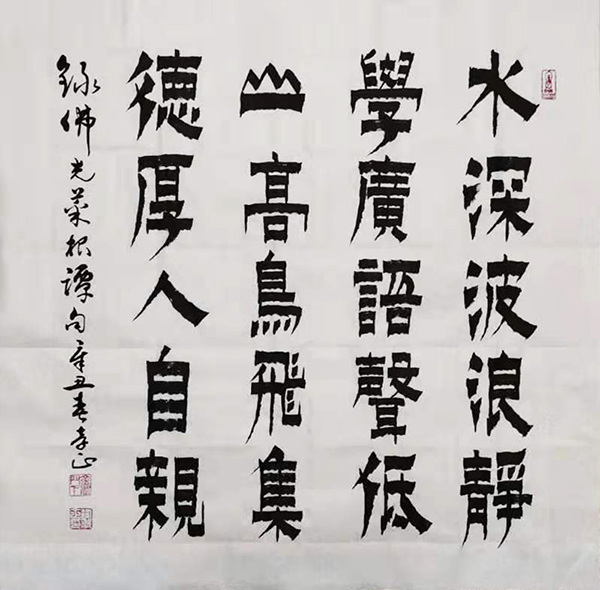 水深波浪靜
學廣語聲低
山高鳥飛集
德厚人自親
錄佛光菜根譚句辛丑春孝正